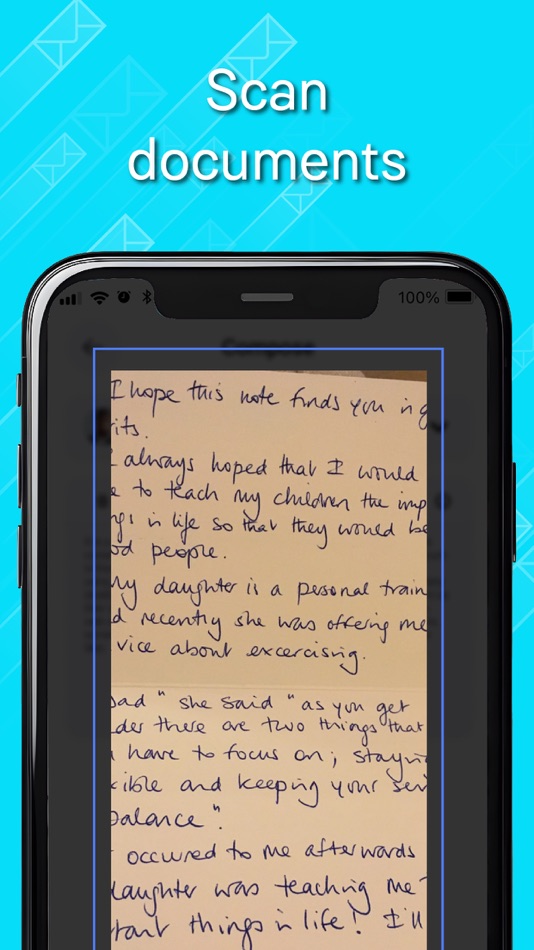 Scan
documents
100%
Compose
I hope this note finds you in g
rits.
I always hoped that I would
e to teach my children the imp
ngs in life so that they would be
od people.
My daughter is a pesonal train
d recently she was offering me
vice about excercising.
Dad" she said "as you get
lder there are two things that
have to focus on; staying
xible and keeping your sen
balance".
t occured to me afterwards
daughter was teaching me
tant things in life! I'll